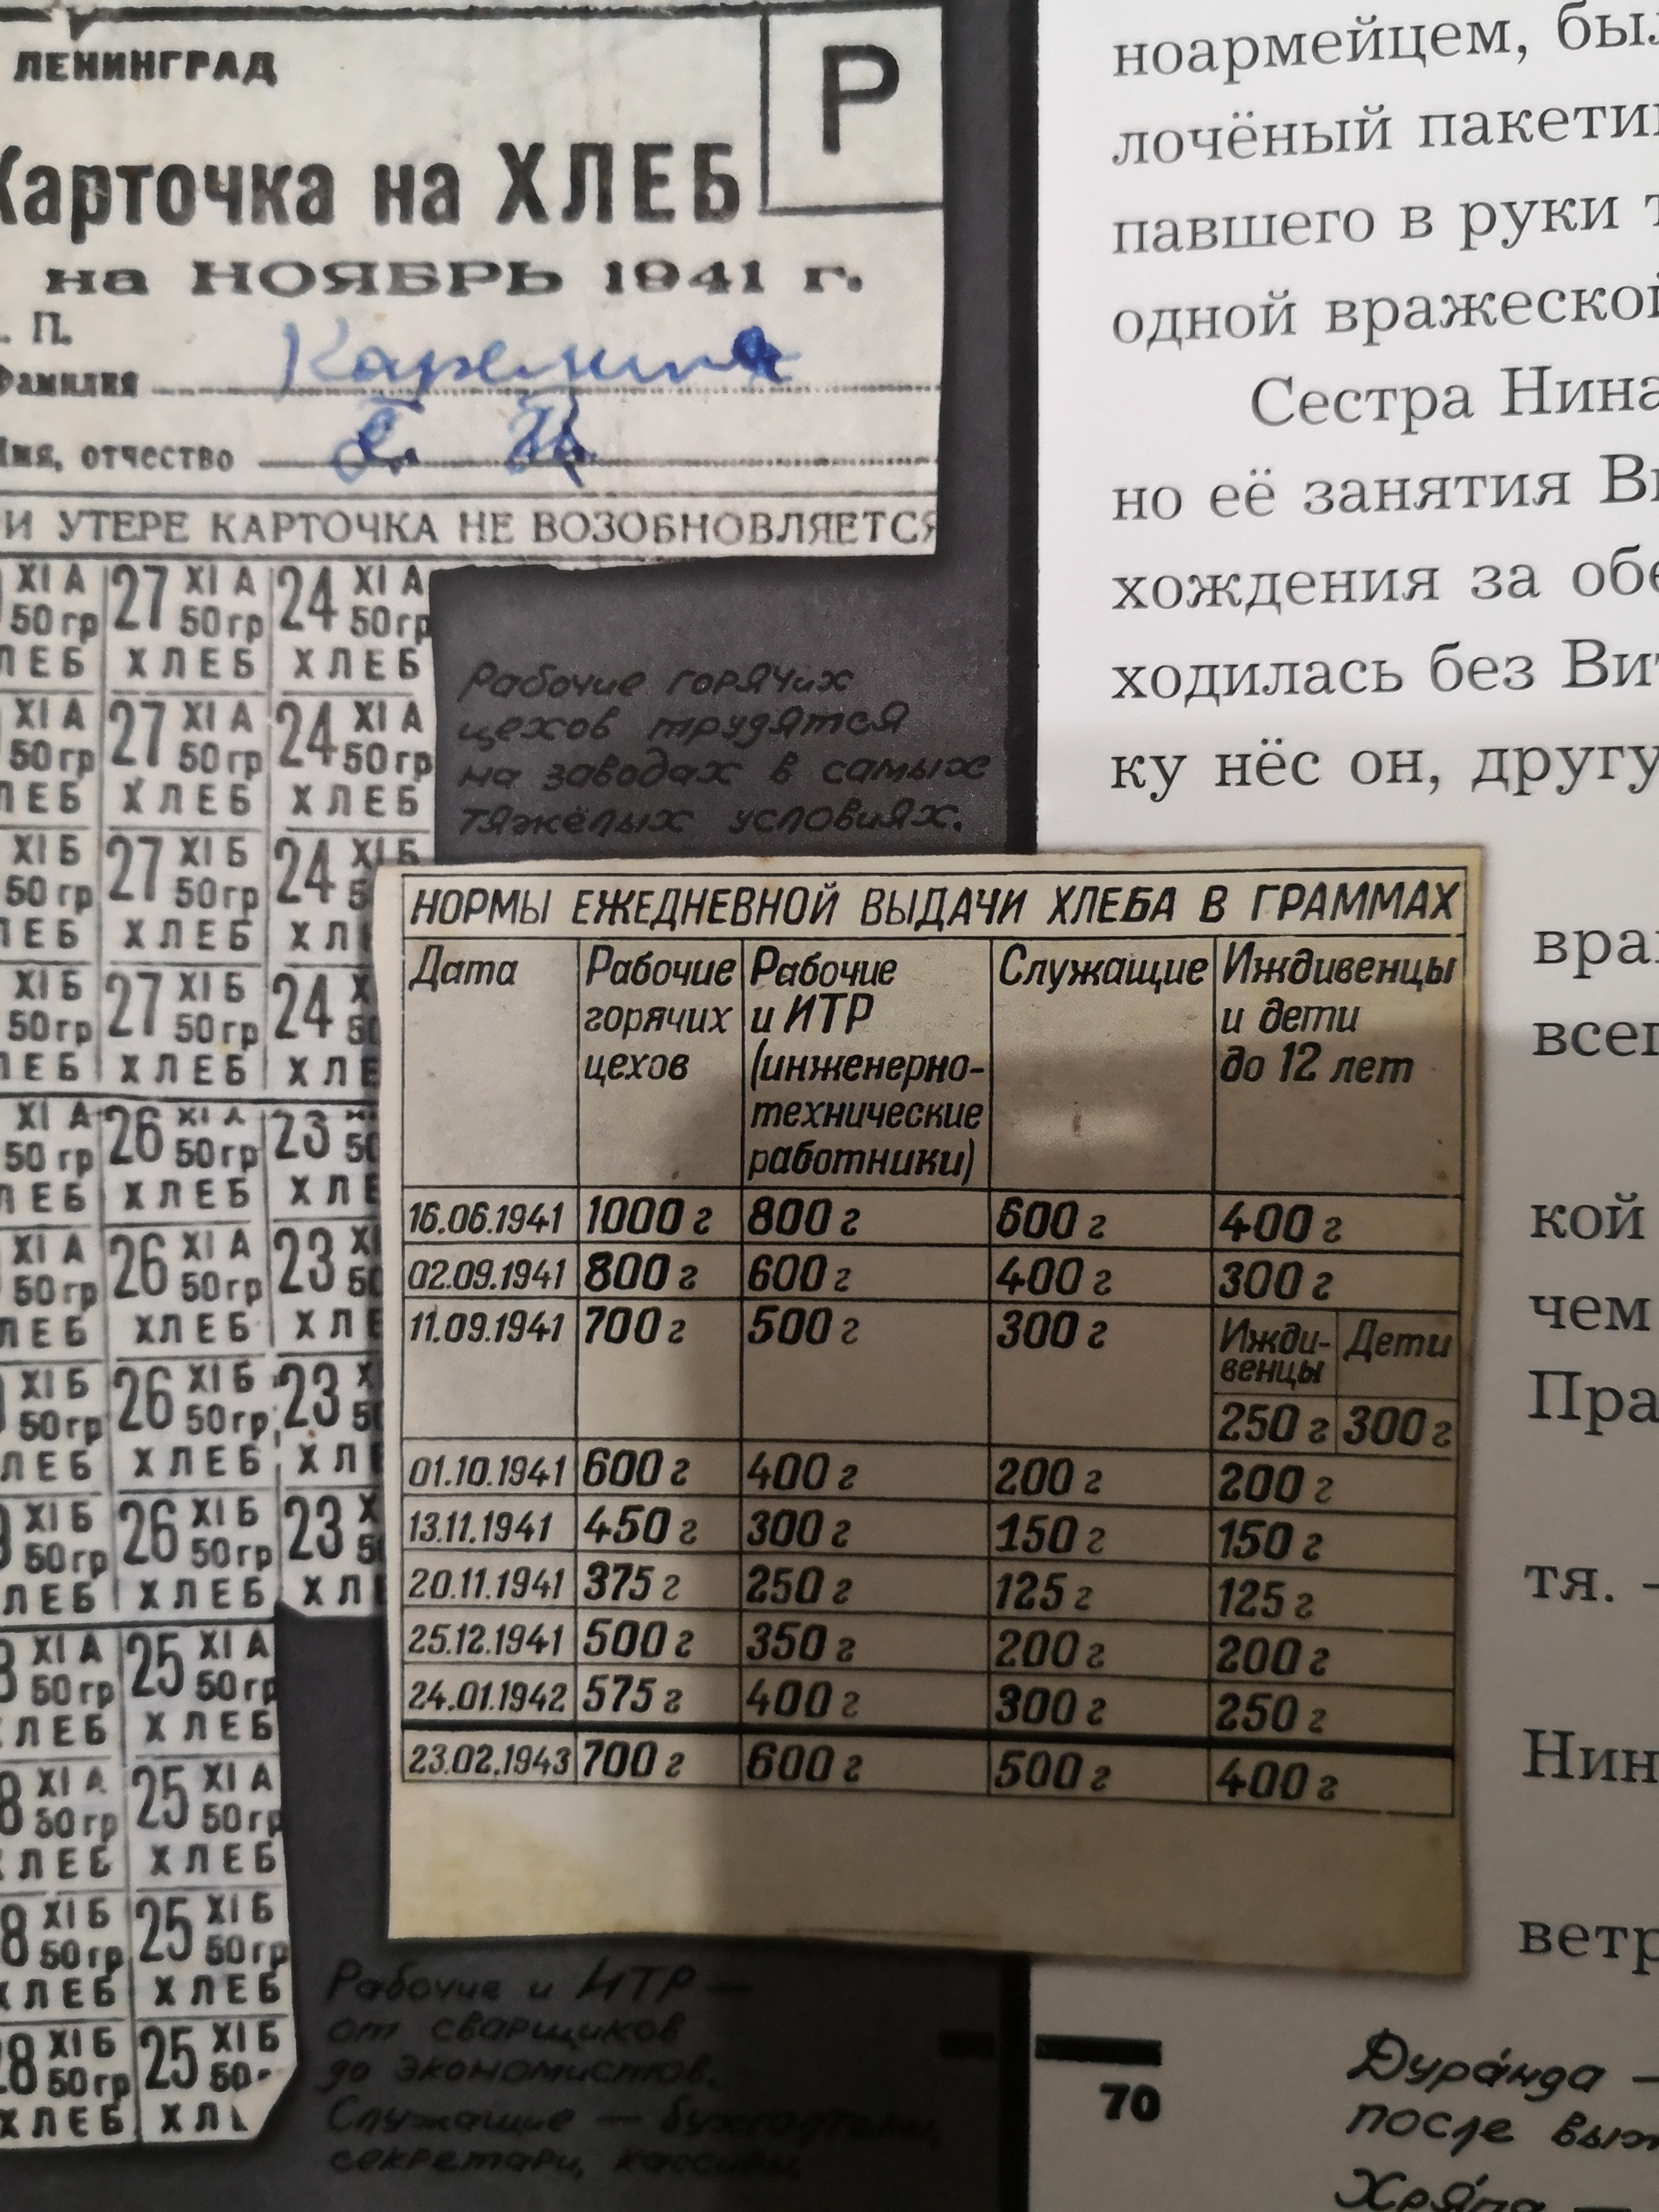 ЛЕНИНГРАД
Р
Карточка на ХЛЕБ
на НОЯБРЬ 1941 г.
. П.
Фамилия Карелина
Имя, отчество
РИ УТЕРЕ КАРТОЧКА НЕ ВОЗОБНОВЛЯЕТСЯ
XI А 27 XI А 24 XI А
50 гр 50 гр 50 гр
ЛЕБ ХЛЕБ ХЛЕБ
XI А 27 XI А 24 XI А
50 гр 50 гр 50 гр
ЛЕБ ХЛЕБ ХЛЕБ
XI Б 27 XI Б 24 XI Б
50 гр 50 гр 5
ЛЕБ ХЛЕБ ХЛ
XI Б 27 XI Б 24 X
50 гр 50 гр 50
ЛЕБ ХЛЕБ ХЛЕ
XI А 26 XI А 23
50 гр 50 гр 50
ЛЕБ ХЛЕБ ХЛЕ
XI А 26 XI А 23 XI
50 гр 50 гр 50
ЛЕБ ХЛЕБ ХЛЕ
XI Б 26 XI Б 23 X
50 гр 50 гр 50
ЛЕБ ХЛЕБ ХЛ
XI Б 26 XI Б 23 X
50 гр 50 гр 50
ЛЕБ ХЛЕБ ХЛ
8 XI А 25 XI А
50 гр 50 гр
ХЛЕБ ХЛЕБ
8 XI А 25 XI А
50 гр 50 гр
ХЛЕБ ХЛЕБ
8 XI Б 25 XI Б
50 гр 50 гр
ХЛЕБ ХЛЕБ
28 XI Б 25 XI Б
50 гр 50
ХЛЕБ ХЛ
Рабочие горячих
цехов трудятся
на заводах в самых
тяжёлых условиях.
НОРМЫ ЕЖЕДНЕВНОЙ ВЫДАЧИ ХЛЕБА В ГРАММАХ
Дата Рабочие Рабочие Служащие Иждивенцы
горячих и ИТР и дети
цехов (инженерно- до 12 лет
технические
работники)
16.06.1941 1000 г 800 г 600 г 400 г
02.09.1941 800 г 600 г 400 г 300 г
11.09.1941 700 г 500 г 300 г Ижди- Дети
венцы
250 г 300 г
01.10.1941 600 г 400 г 200 г 200 г
13.11.1941 450 г 300 г 150 г 150 г
20.11.1941 375 г 250 г 125 г 125 г
25.12.1941 500 г 350 г 200 г 200 г
24.01.1942 575 г 400 г 300 г 250 г
23.02.1943 700 г 600 г 500 г 400 г
Рабочие и ИТР —
от сварщиков
до экономистов.
Служащие — бухгалтеры,
секретари, кассиры
ноармейцем, был
лочёный пакетик
павшего в руки т
одной вражеской
Сестра Нина
но её занятия Ви
хождения за обе
ходилась без Вит
ку нёс он, другу
враг
всег
кой
чем
Пра
тя. –
Нин
ветр
70
Дуранда —
после выж
Хряпа —